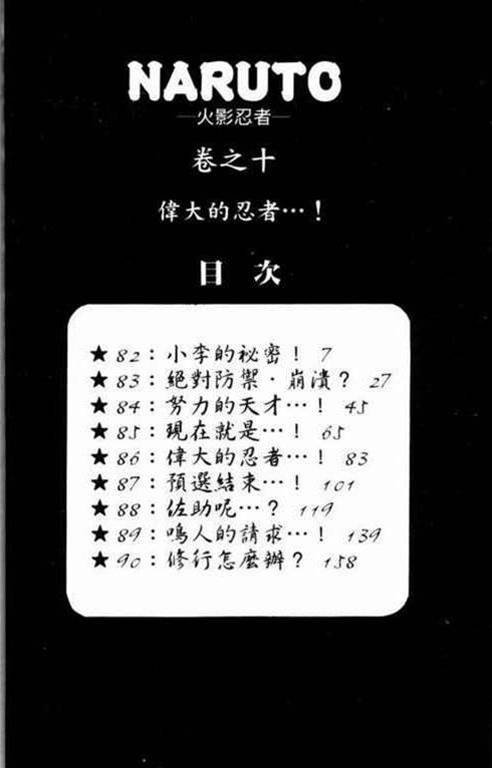 NARUTO
—火影忍者—
卷之十
偉大的忍者…！
目次
★82：小李的祕密！ 7
★83：絕對防禦·崩潰？ 27
★84：努力的天才…！ 45
★85：現在就是…！ 65
★86：偉大的忍者…！ 83
★87：預選結束…！ 101
★88：佐助呢…？ 119
★89：鳴人的請求…！ 139
★90：修行怎麼辦？ 158